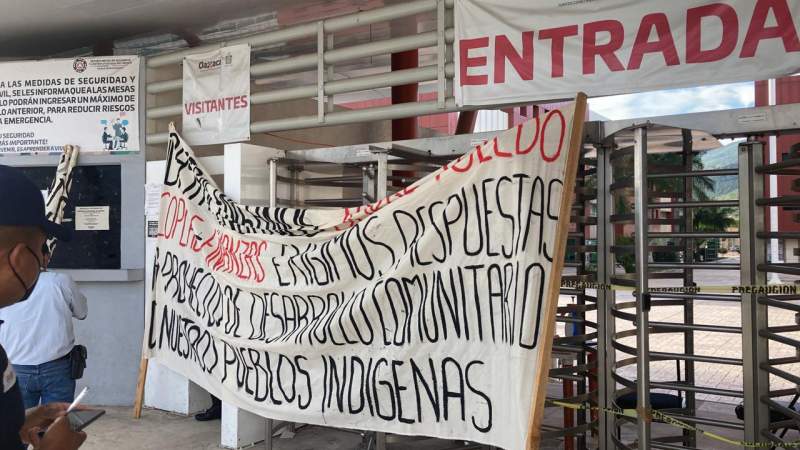 A LAS MEDIDAS DE SEGURIDAD Y
VIL, SE LES INFORMA QUE A LAS MESAS
LO PODRÁN INGRESAR UN MÁXIMO DE
LO ANTERIOR, PARA REDUCIR RIESGOS
EMERGENCIA.
SEGURIDAD
ÁS IMPORTANTE!
ENIR, ES APRENDER A VIVIR
Oaxaca
VISITANTES
ENTRADA
TOLEDO
EXIGIMOS RESPUESTAS
PROYECTO DE DESARROLLO COMUNITARIO
NUESTROS PUEBLOS INDIGENAS
PRECAUCION
PRECAUCION
PRECAUCION